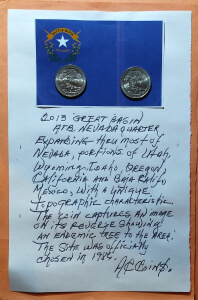 2013 GREAT BASIN
ATB NEVADA QUARTER
EXPANDING thru most of
NEVADA, portions of Utah,
Wyoming, Idaho, Oregon,
California and Baja Calif,
Mexico, with a unique
topographic characteristic.
The coin captures an image
on its reverse showing
an endemic tree to the area.
The site was officially
chosen in 1986.